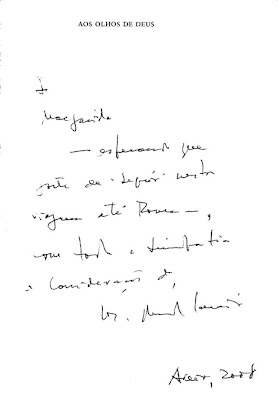 AOS OLHOS DE DEUS
À
Margarida
— esperando que
goste de "seguir" nesta
viagem até Roma —,
com toda a simpatia
e consideração d,
Aveiro, 2008